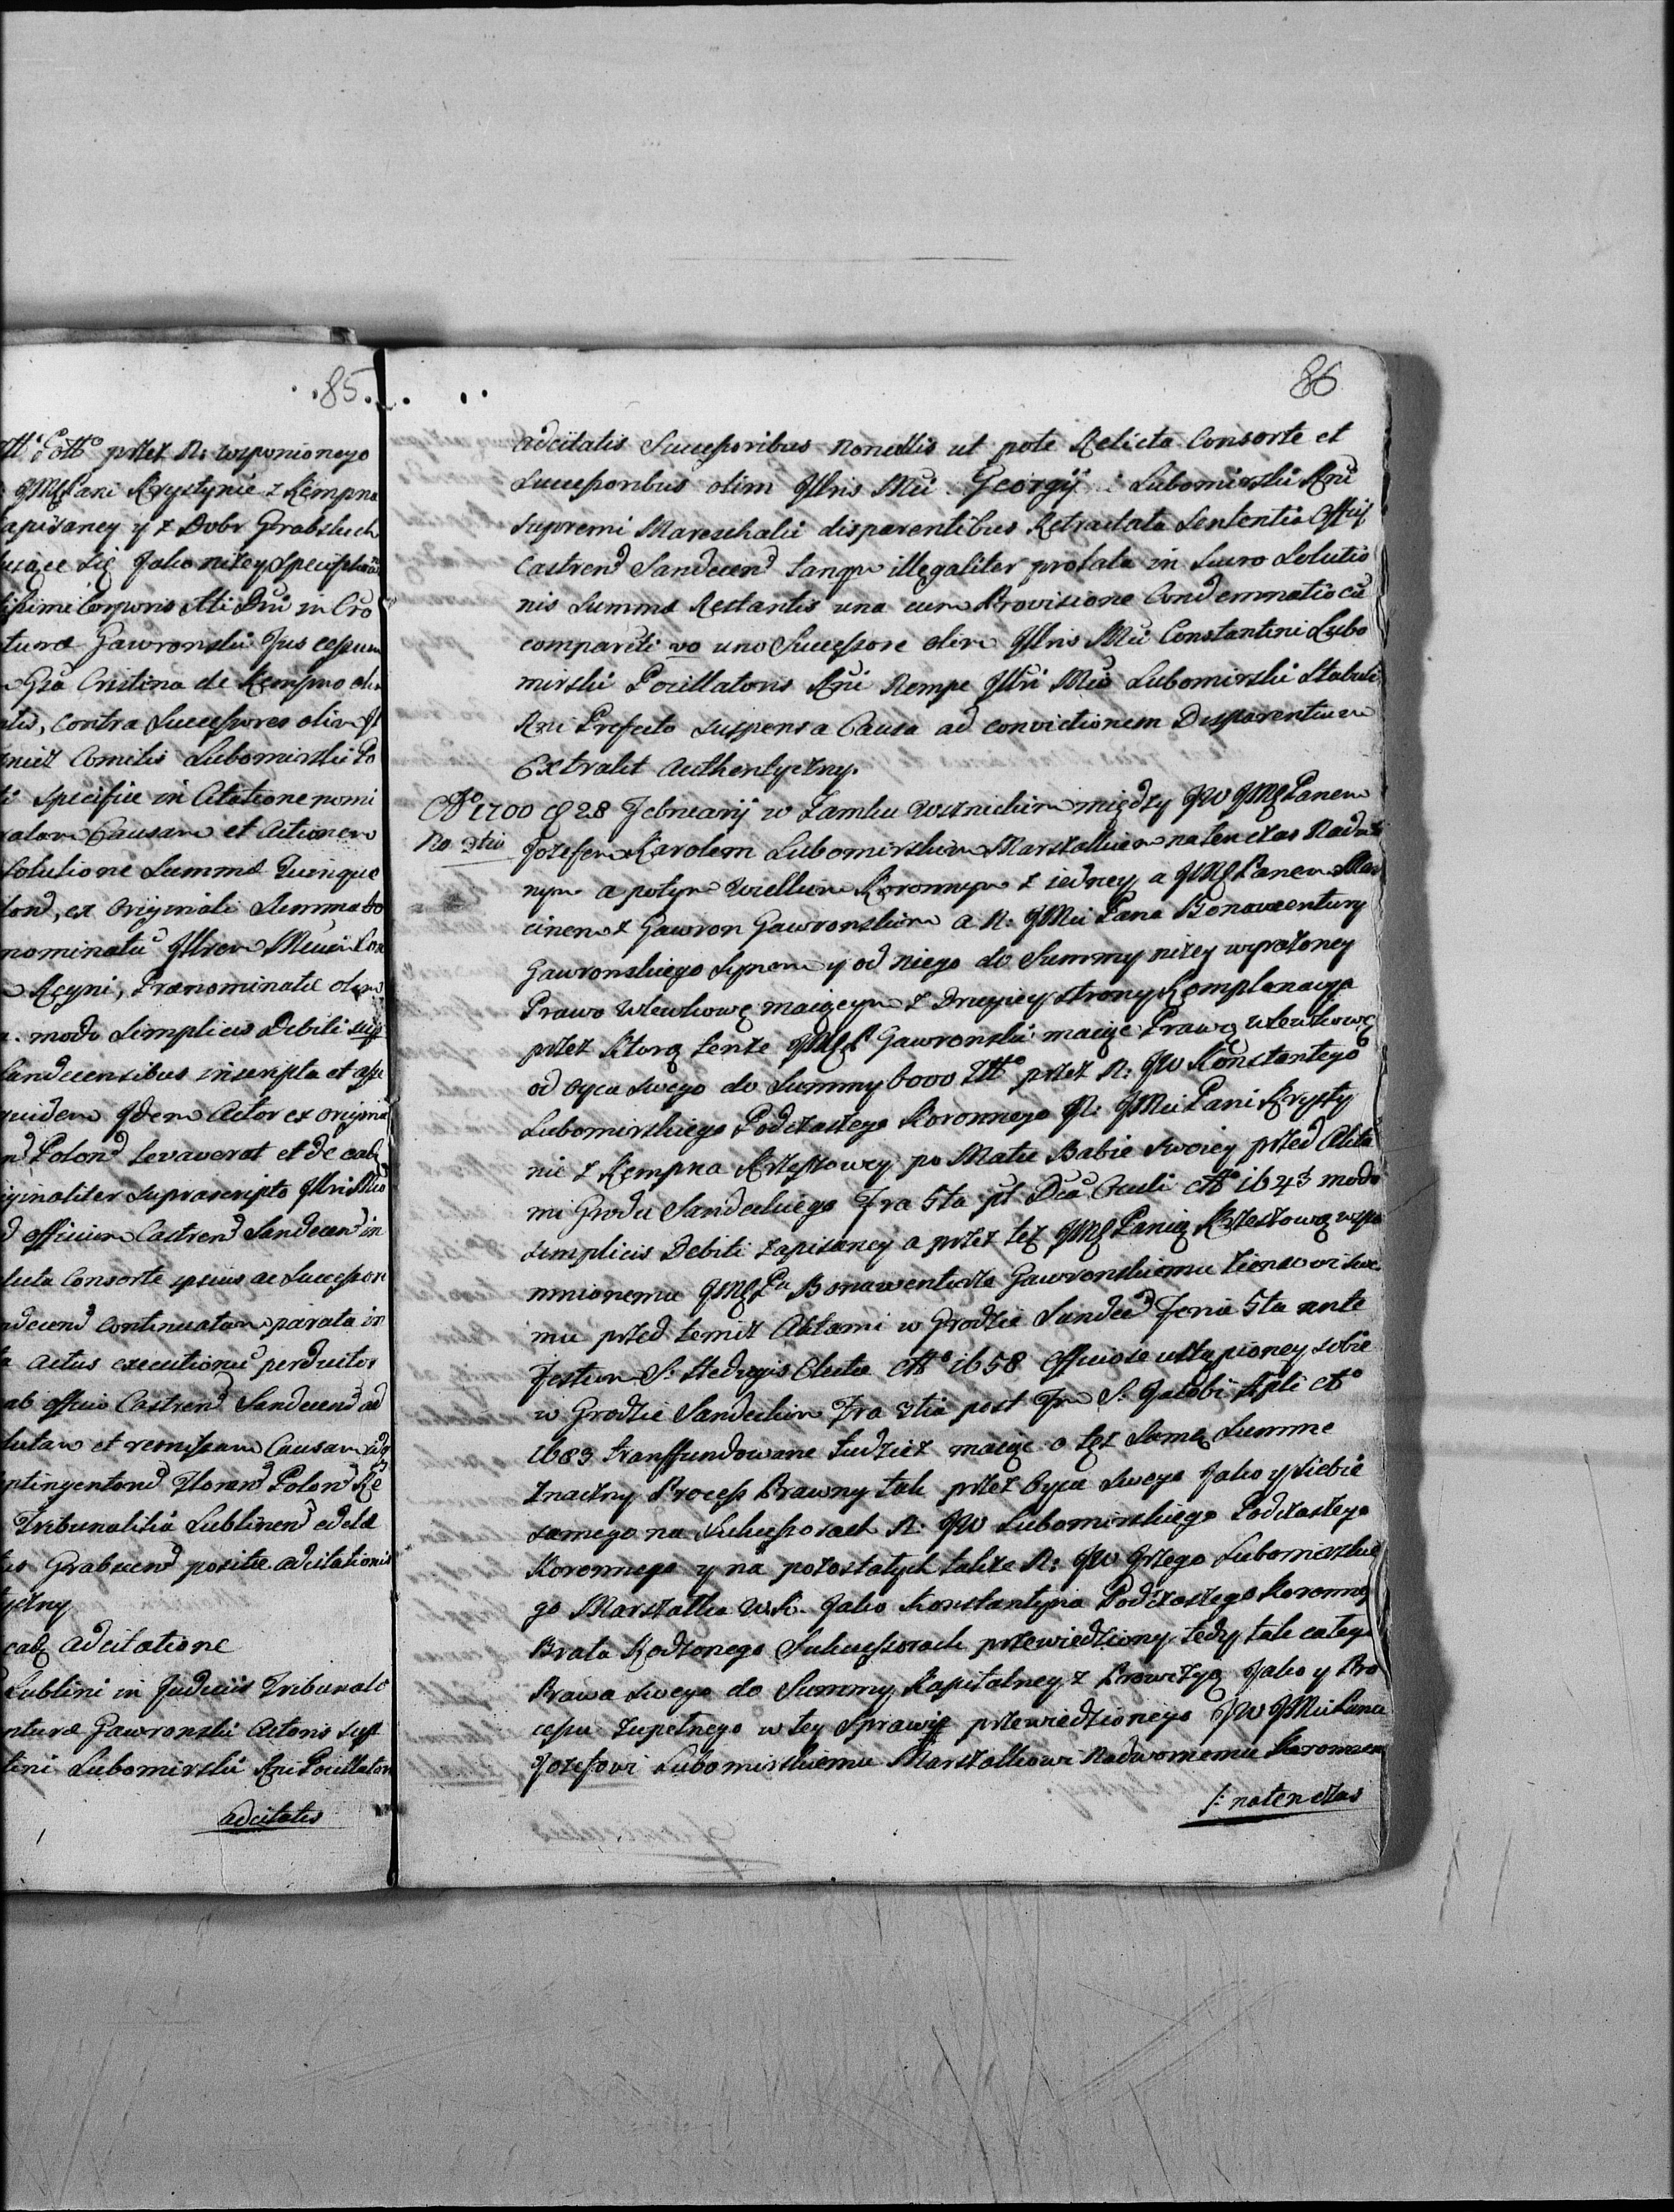 85.
tt. Pol prżez N: wspomionego
JMPani Krystynie z Kempna
apisaney y z Dobr Grabskich
Gra Cristina de Kempno olim
tis, contra Successores olim
Comitis Lubomirski Po
specifice in Citatione nomi
Causam et Actionem
Solutione Summæ Quinque
ex Originali Summa 60
nominatū Illrem
Regni, Prænominatæ olim
modo Simplicis Debiti
Sandecensibus inscripta et
quidem Idem Actor ex origina
Polon levaverat et de ead
iginaliter Suprascripto
officium Castren Sandecen in
licta Consorte ipsius ac Successor
ndecen continuatam parata in
Actus executionū perductor
ab officio Castren Sandecen ad
lutam et remissam Causam
ntingenton Floren Polon
Tribunalitia Lublinen
Grabscen positæ adcitationis
yczny
ead adcitatione
Lublini in Judiciis Tribunal
nturæ Gawronski Actoris
tini Lubomirski Rni Pocillator
adcitatis
86
adcitatis Successoribus nonullis ut pote Relicta Consorte et
Successoribus olim Illris Mci Georgij Lubomirski Rni
Supremi Mareschalii disparentibus Retractata Sententia Officij
Castren Sandecen tanqm illegaliter prolata in Lucro Solutio
nis Summæ Restantis una cum Provisione Condemnatio cū
comparēti vo uno Successore olim Illris Mci Constantini Lubo
mirski Pocillatoris Rni Nempe Illri Mco Lubomirski Stabuli
Rni Prefecto suspensa Causa ad convictionem Disparentium
Extrakt Authentyczny.
No 3tio
Ao 1700 D 28 Februarij w Zamku Wisnickim między JW JMPanem
Jozefem Karolem Lubomirskim Marszałkiem natenczas Nadwor
nym a potym Wielkim Koronnym z iedney, a JMPanem Mar
cinem z Gawron Gawronskim a N: JMci Pana Bonawentury
Gawronskiego Synem y od niego do Summy niżey wyrażoney
Prawo Wlewkowę maiącym z Drugiey strony Komplanacya
przez ktorą tenże JMP Gawronski maiąc Prawo wlewkowe
od oyca swego do Summy 6000 Złto przez N: JW Konstantego
Lubomirskiego Podczaszego Koronnego N: JMci Pani Krysty
nie z Kempna Krzeszowey po Matce Babie swoiey przed Akta
mi Grodu Sandeckiego Fra 5ta pt Dca Oculi Ao 1643 modo
simplicis Debiti zapisaney a przez tęż JMPanią Krzeszową wspo
mnionemu JMPu Bonawenturze Gawronskiemu Zięciowi swe
mu przed temiż Aktami w Grodzie Sandec Feria 5ta ante
Festum S. Hedvigis Electæ Ao 1658 Officiose ustąpioney sobie
w Grodzie Sandeckim Fra 3tia post Fm S. Jacobi Apli Ao
1683 transfundowane tudzież maiąc o tęż Samę Summe
znaczny Process Prawny tak przez Oyca Swego Jako y siebie
samego na Sukcessorach N: JW Lubomirskiego Podczaszego
Koronnego y na pozostałych także N: JW Jrzego Lubomirskie
go Marszałka W. K. Jako Konstantyna Podczaszego Koronneg
Brata Rodzonego Sukcessorach przewiedziony, tedy tak całego
Prawa swego do Summy Kapitalney z Prowizyą Jako y Pro
cessu zupełnego w tey Sprawie przewiedzionego JW JMciPanu
Jozefowi Lubomirskiemu Marszałkowi Nadwornemu Koronnem
/: natenczas